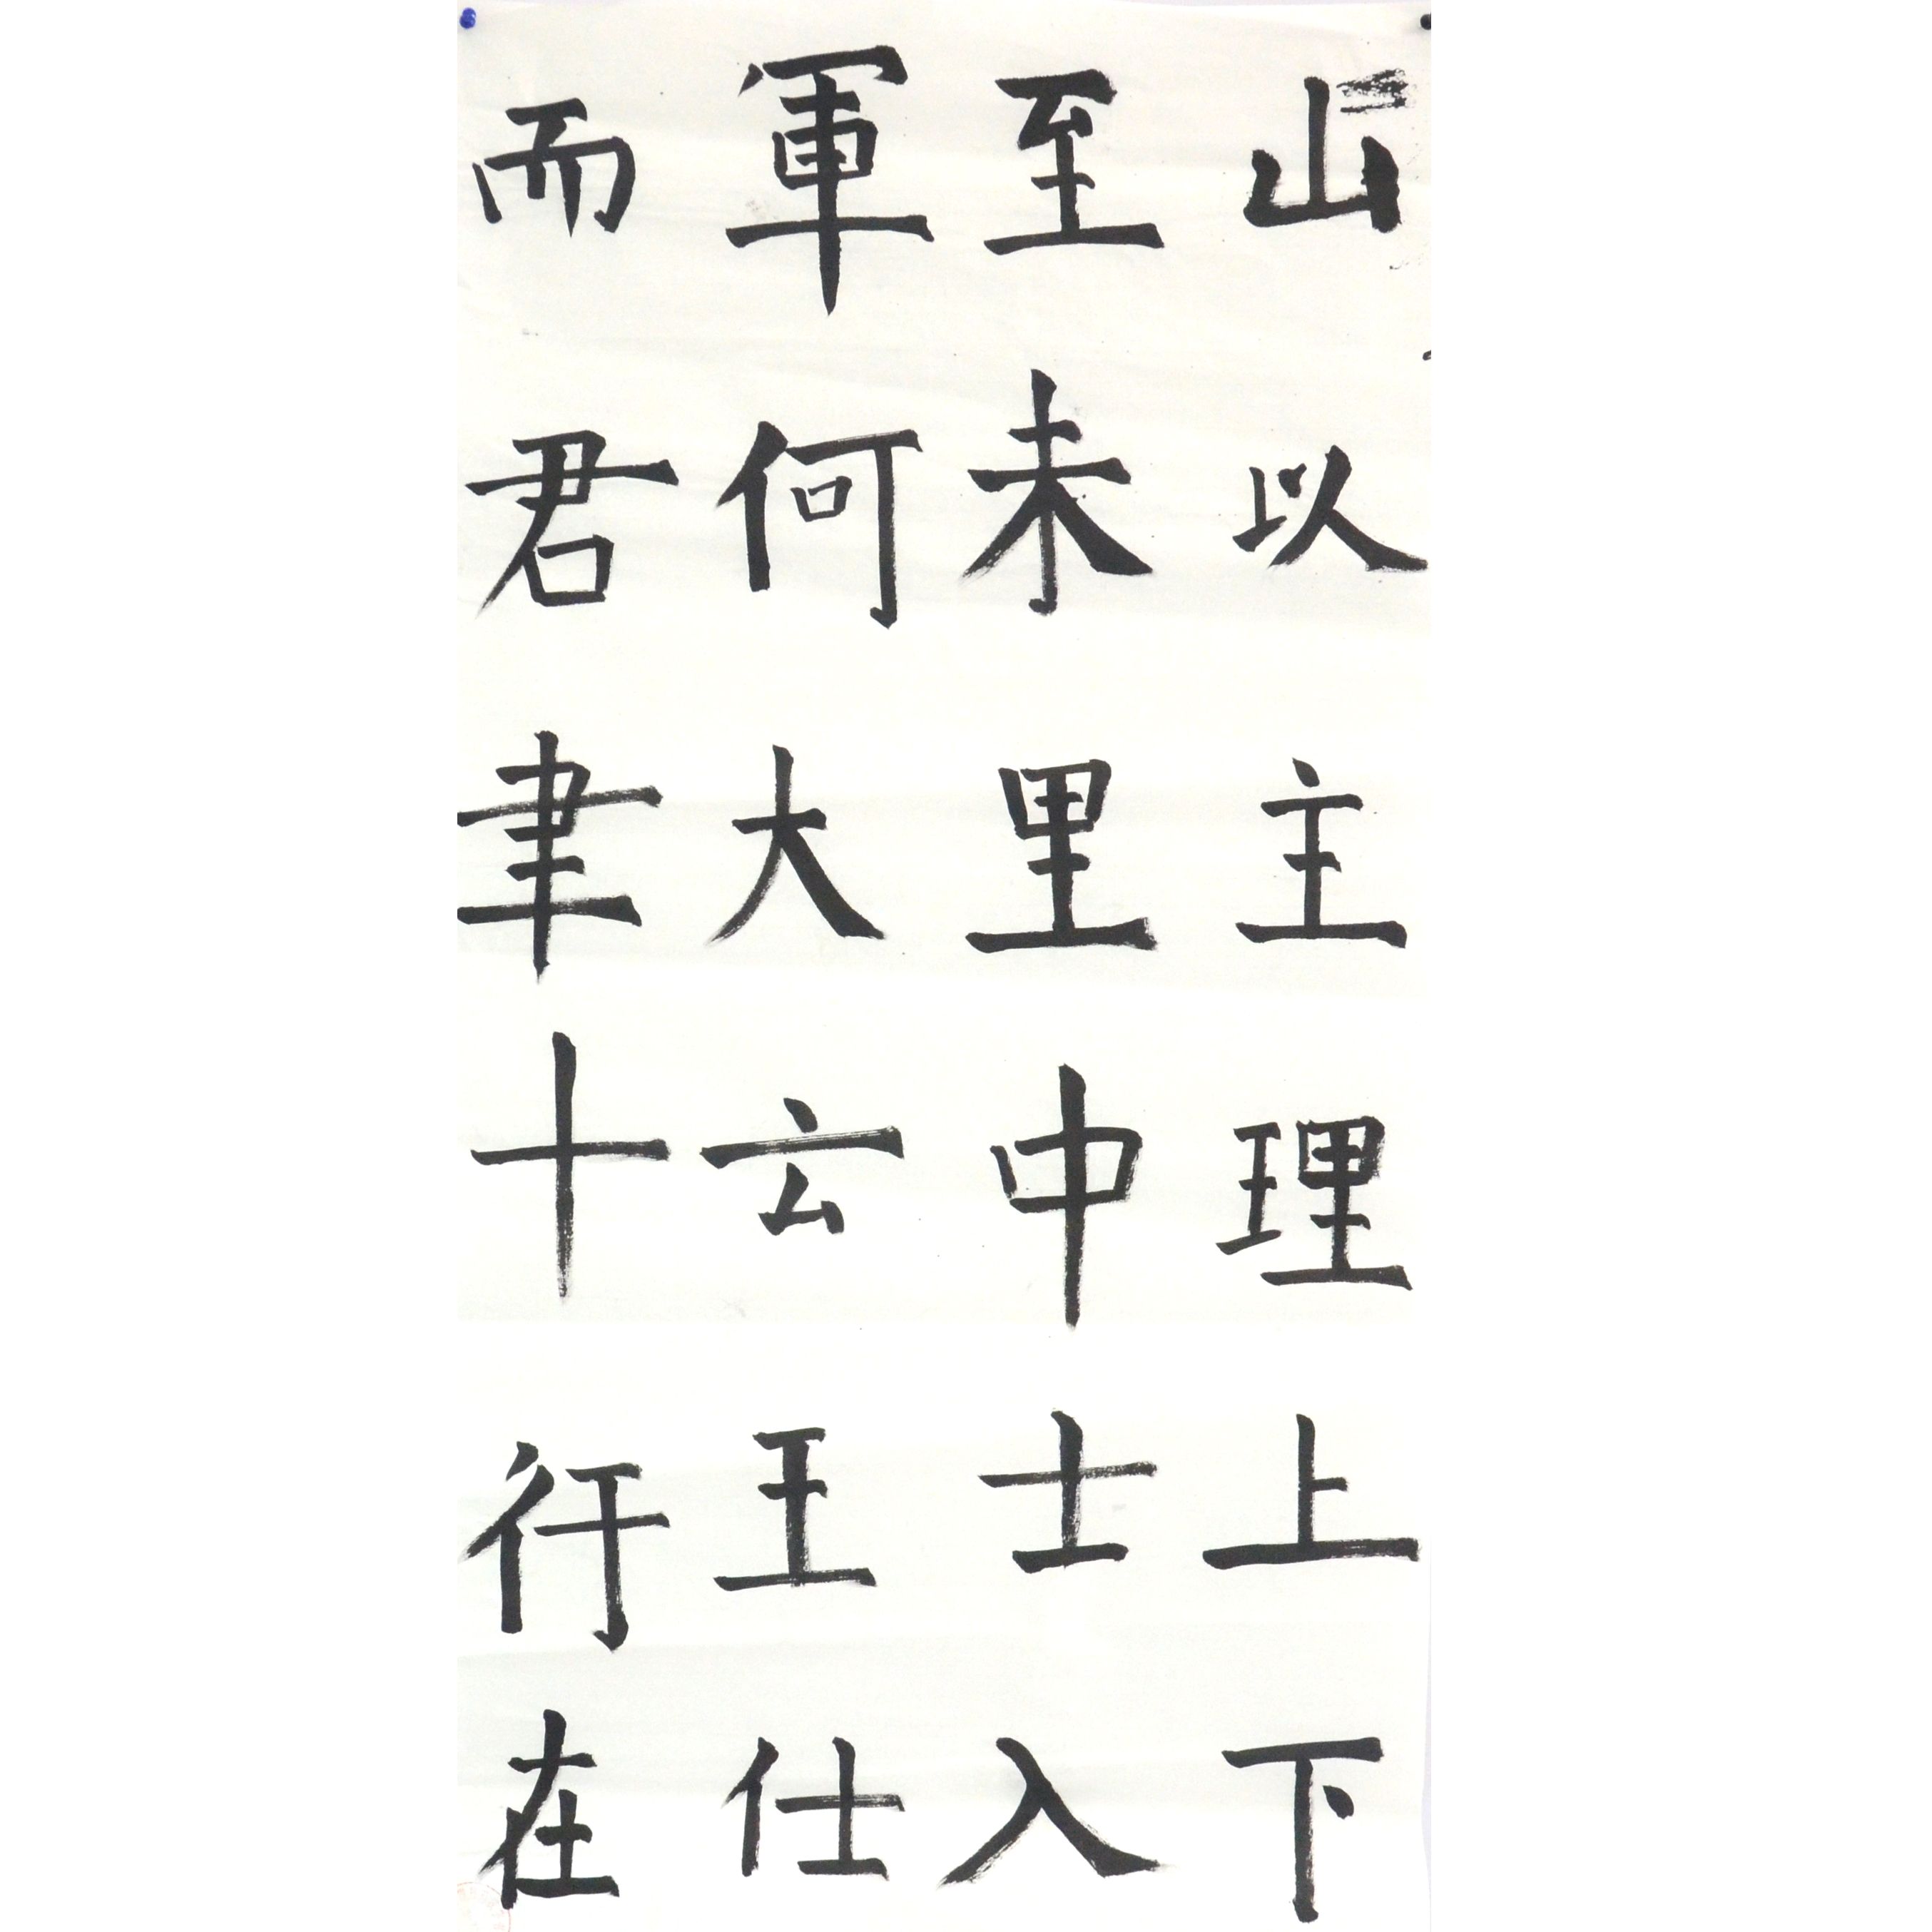 山以主理上下
至未里中士入
軍何大云王仕
而君聿十行在